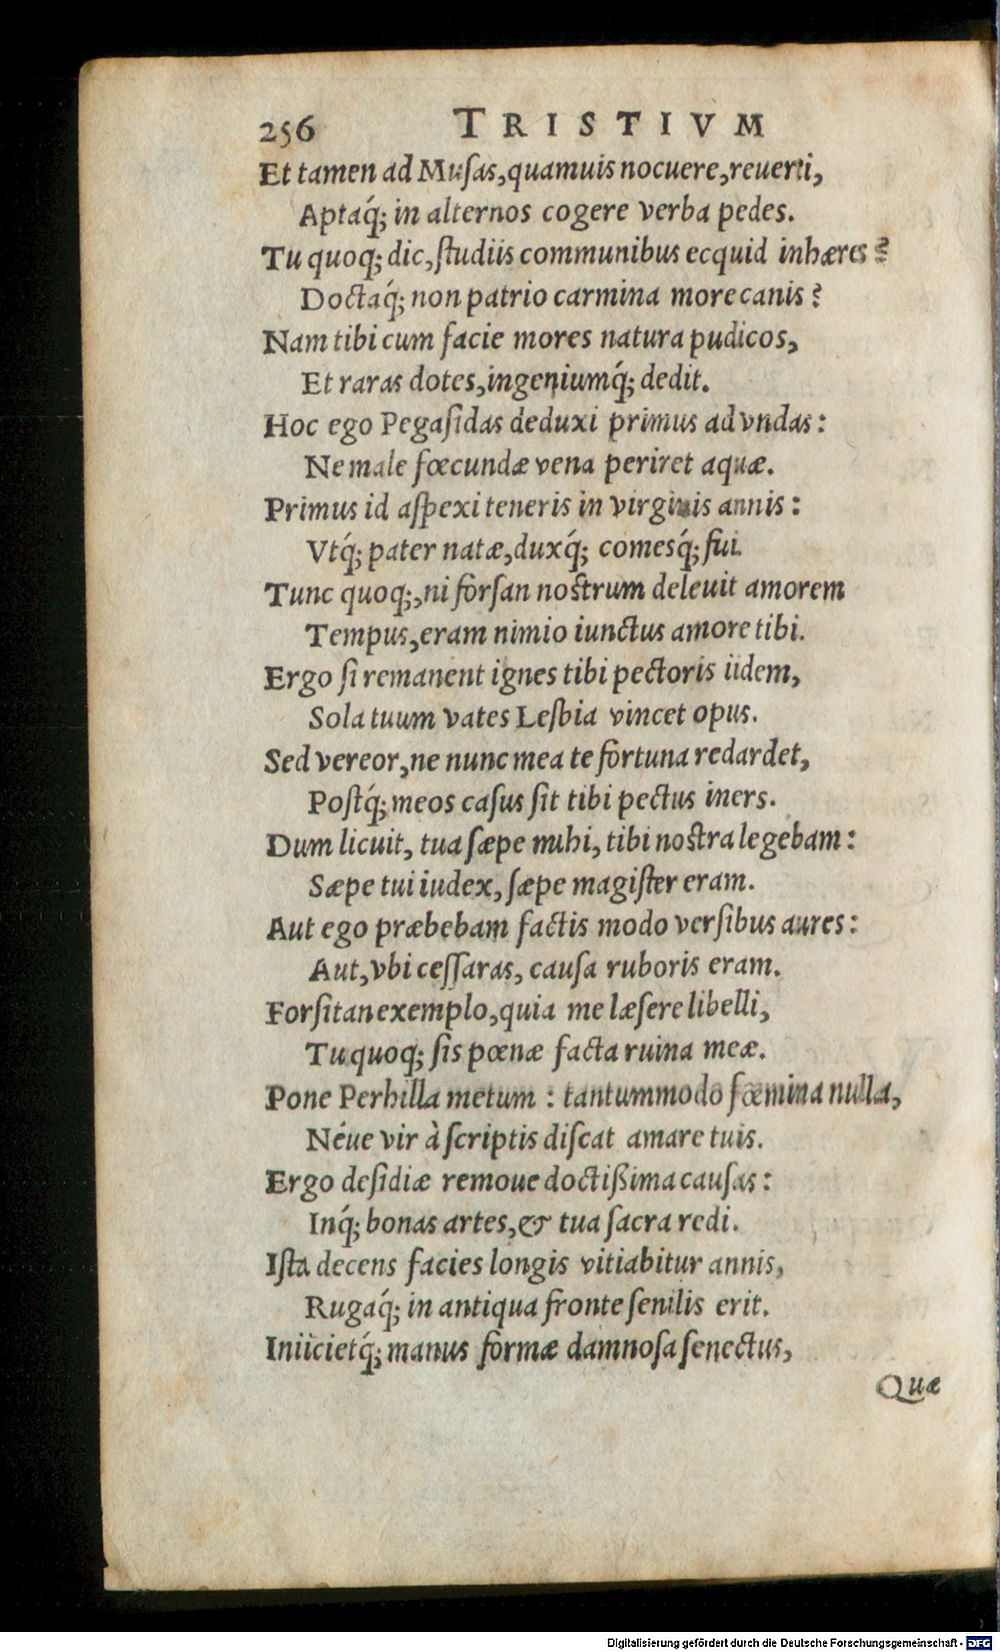 256 TRISTIVM
Et tamen ad Muſas,quamuis nocuere,reuerti,
Aptaq́; in alternos cogere verba pedes.
Tu quoq; dic,ſtudiis communibus ecquid inhæres?
Doctaq́; non patrio carmina more canis?
Nam tibi cum facie mores natura pudicos,
Et raras dotes,ingeniumq́; dedit.
Hoc ego Pegaſidas deduxi primus ad vndas:
Ne male fœcundæ vena periret aquæ.
Primus id aſpexi teneris in virginis annis:
Vtq́; pater natæ,duxq́; comesq́; fui.
Tunc quoq;,ni forſan nostrum deleuit amorem
Tempus,eram nimio iunctus amore tibi.
Ergo ſi remanent ignes tibi pectoris iidem,
Sola tuum vates Leſbia vincet opus.
Sed vereor,ne nunc mea te fortuna redardet,
Poſtq́; meos caſus ſit tibi pectus iners.
Dum licuit, tua ſæpe mihi, tibi nostra legebam:
Sæpe tui iudex, ſæpe magiſter eram.
Aut ego præbebam factis modo verſibus aures:
Aut,vbi ceſſaras, cauſa ruboris eram.
Forſitan exemplo,quia me læſere libelli,
Tu quoq; ſis pœnæ facta ruina meæ.
Pone Perhilla metum : tantummodo fœmina nulla,
Néue vir à ſcriptis diſcat amare tuis.
Ergo deſidiæ remoue doctißima cauſas:
Inq́; bonas artes,& tua ſacra redi.
Iſta decens facies longis vitiabitur annis,
Rugaq́; in antiqua fronte ſenilis erit.
Iniicietq́; manus formæ damnoſa ſenectus,
Quæ
Digitalisierung gefördert durch die Deutsche Forschungsgemeinschaft - DFG